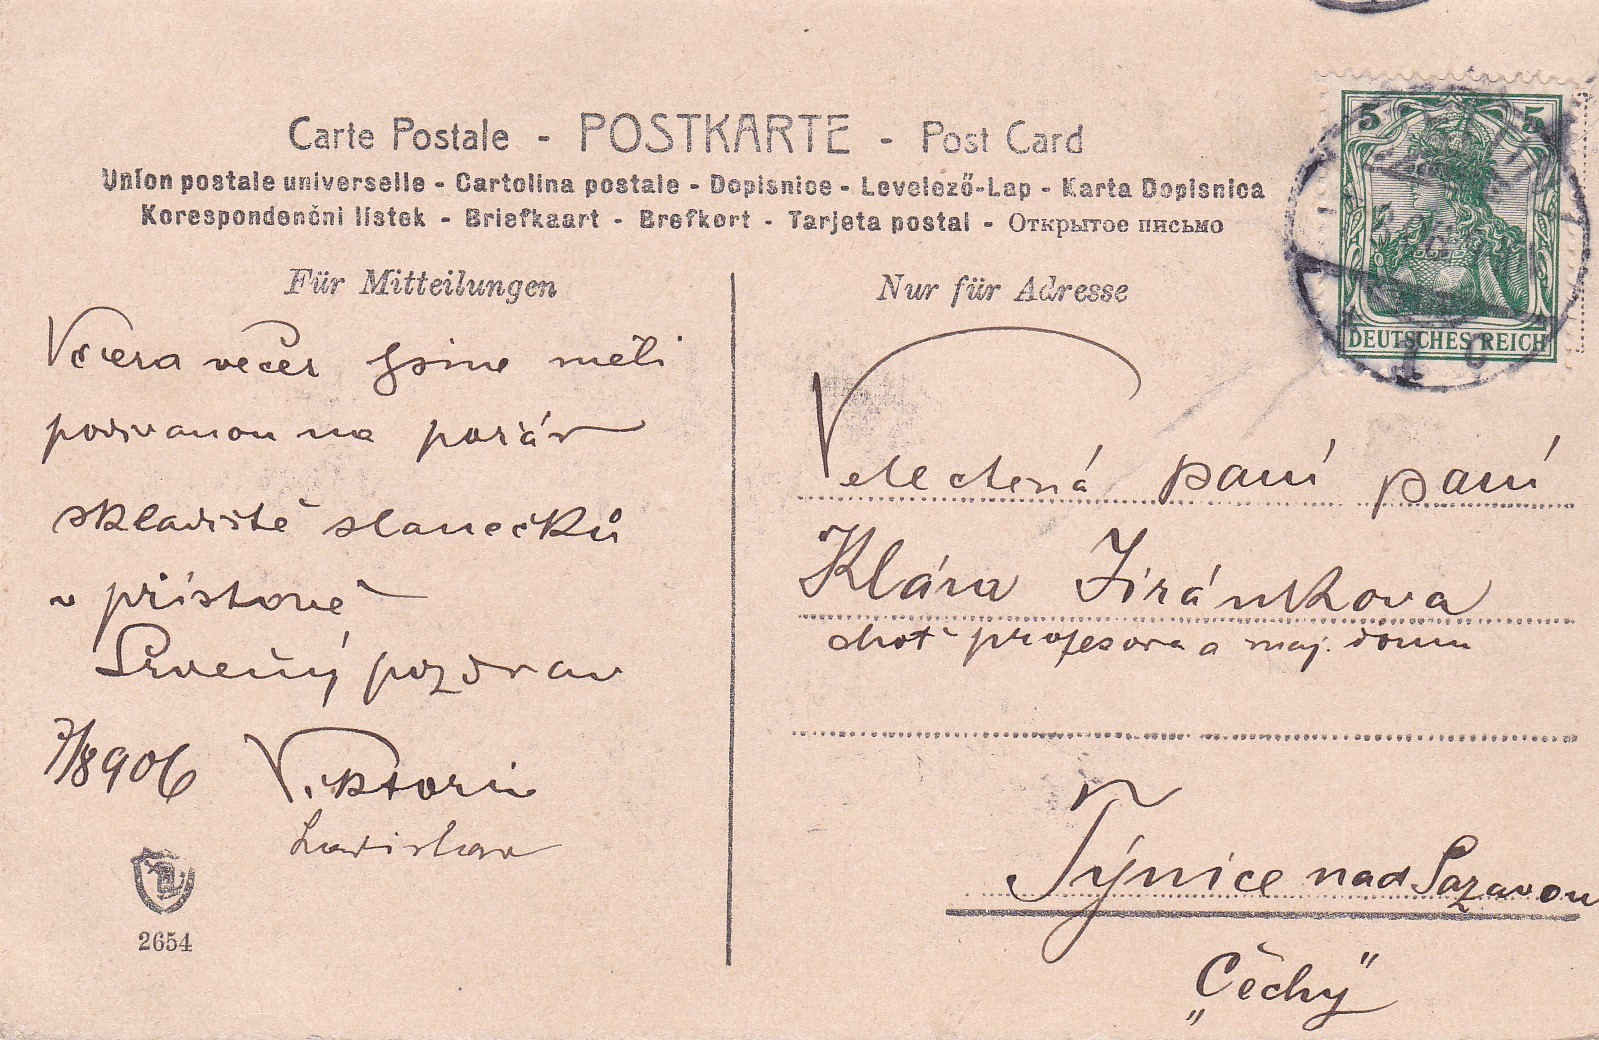 Carte Postale - POSTKARTE - Post Card
Union postale universelle - Cartolina postale - Dopisnice - Levelező-Lap - Karta Dopisnica
Korespondenční listek - Briefkaart - Brefkort - Tarjeta postal - Открытое письмо
Für Mitteilungen
Včera večer jsme měli
podívanou na požár
skladiště slanečků
v přístavě
Srdečný pozdrav
7/8 906 Viktorin
Ladislav
2654
Nur für Adresse
5 5
DEUTSCHES REICH
Velectená paní paní
Klára Jiránkova
choť profesora a maj. domu
Týnice nad Sazavou
„Čechy"